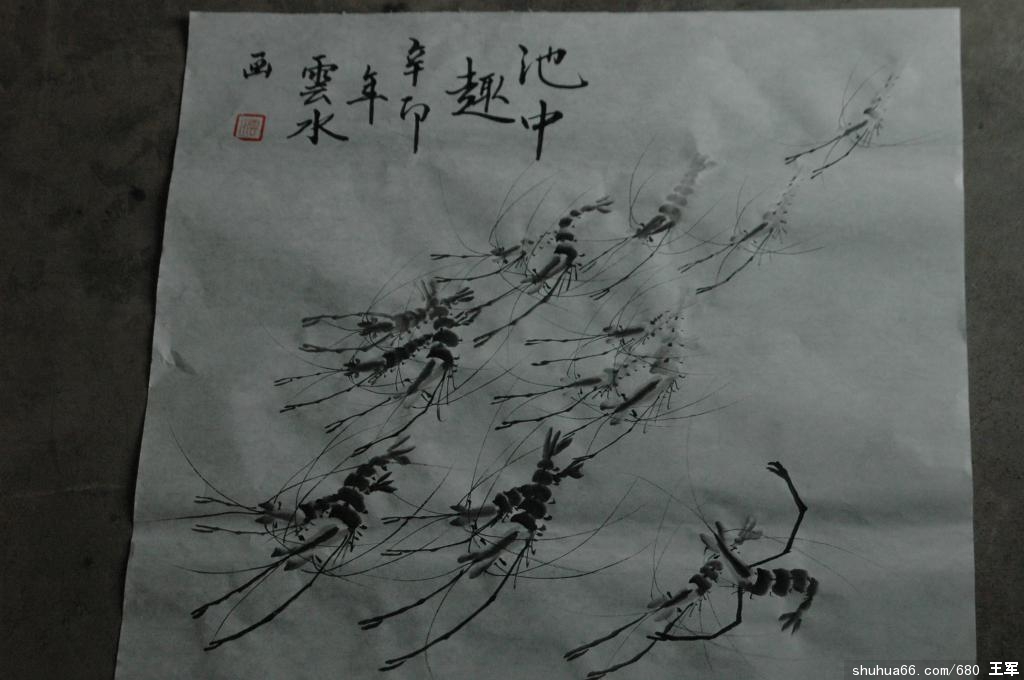 池中
趣
辛卯
年
雲水
画
shuhua66.com/680 王军